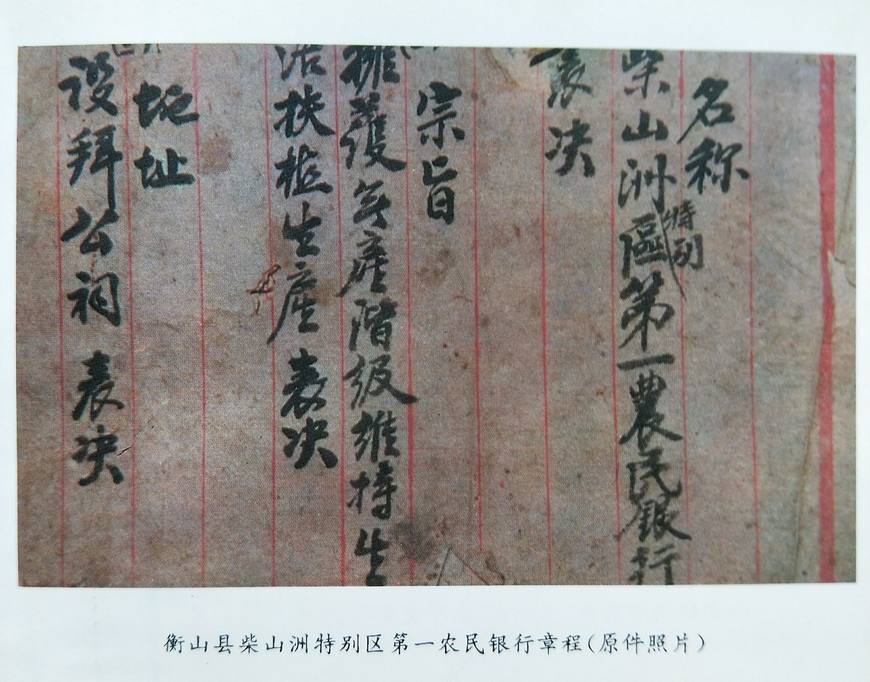 名称
柴山洲特别區第一農民銀行
表决
宗旨
擁護無產階级維持生
活扶植生產表决
地址
设拜公祠表决
衡山县柴山洲特别区第一农民银行章程(原件照片)